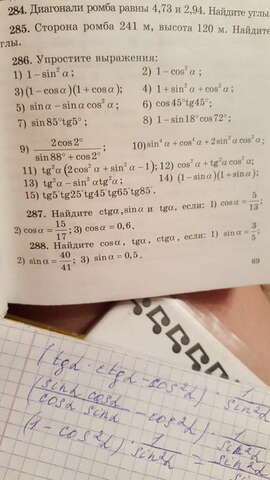 284. Диагонали ромба равны 4,73 и 2,94. Найдите углы
285. Сторона ромба 241 м, высота 120 м. Найдите
глы.
286. Упростите выражения:
1) 1−sin²α; 2) 1−cos²α;
3) (1−cosα)(1+cosα); 4) 1+sin²α+cos²α;
5) sinα−sinα cos²α; 6) cos45°tg45°;
7) sin85°tg5°; 8) 1−sin18°cos72°;
9) 2cos2° / (sin88°+cos2°) 10) sin⁴α+cos⁴α+2sin²α cos²α;
11) tg²α(2cos²α+sin²α−1); 12) cos²α+tg²α cos²α;
13) tg²α−sin²α tg²α; 14) (1−sinα)(1+sinα);
15) tg5°tg25°tg45°tg65°tg85°.
287. Найдите ctgα, sinα и tgα, если: 1) cosα=5/13;
2) cosα=15/17; 3) cosα=0,6.
288. Найдите cosα, tgα, ctgα, если: 1) sinα=3/5;
2) sinα=40/41; 3) sinα=0,5.
69
(tgα · ctgα − cos²α) · 1/sin²α
(sinα cosα / cosα sinα − cos²α) · 1/sin²α
(1 − cos²α) · 1/sin²α = sin²α / sin²α